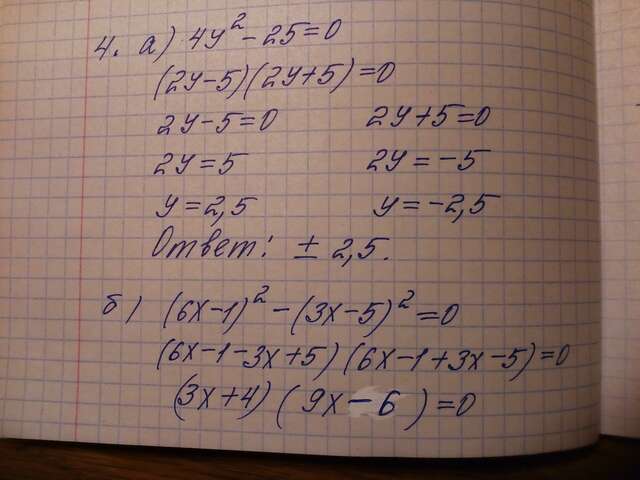 4. а) 4y² - 25 = 0
(2y-5)(2y+5) = 0
2y-5=0 2y+5=0
2y=5 2y=-5
y=2,5 y=-2,5
Ответ: ± 2,5.
б) (6x-1)² - (3x-5)² = 0
(6x-1-3x+5)(6x-1+3x-5)=0
(3x+4)(9x-6)=0